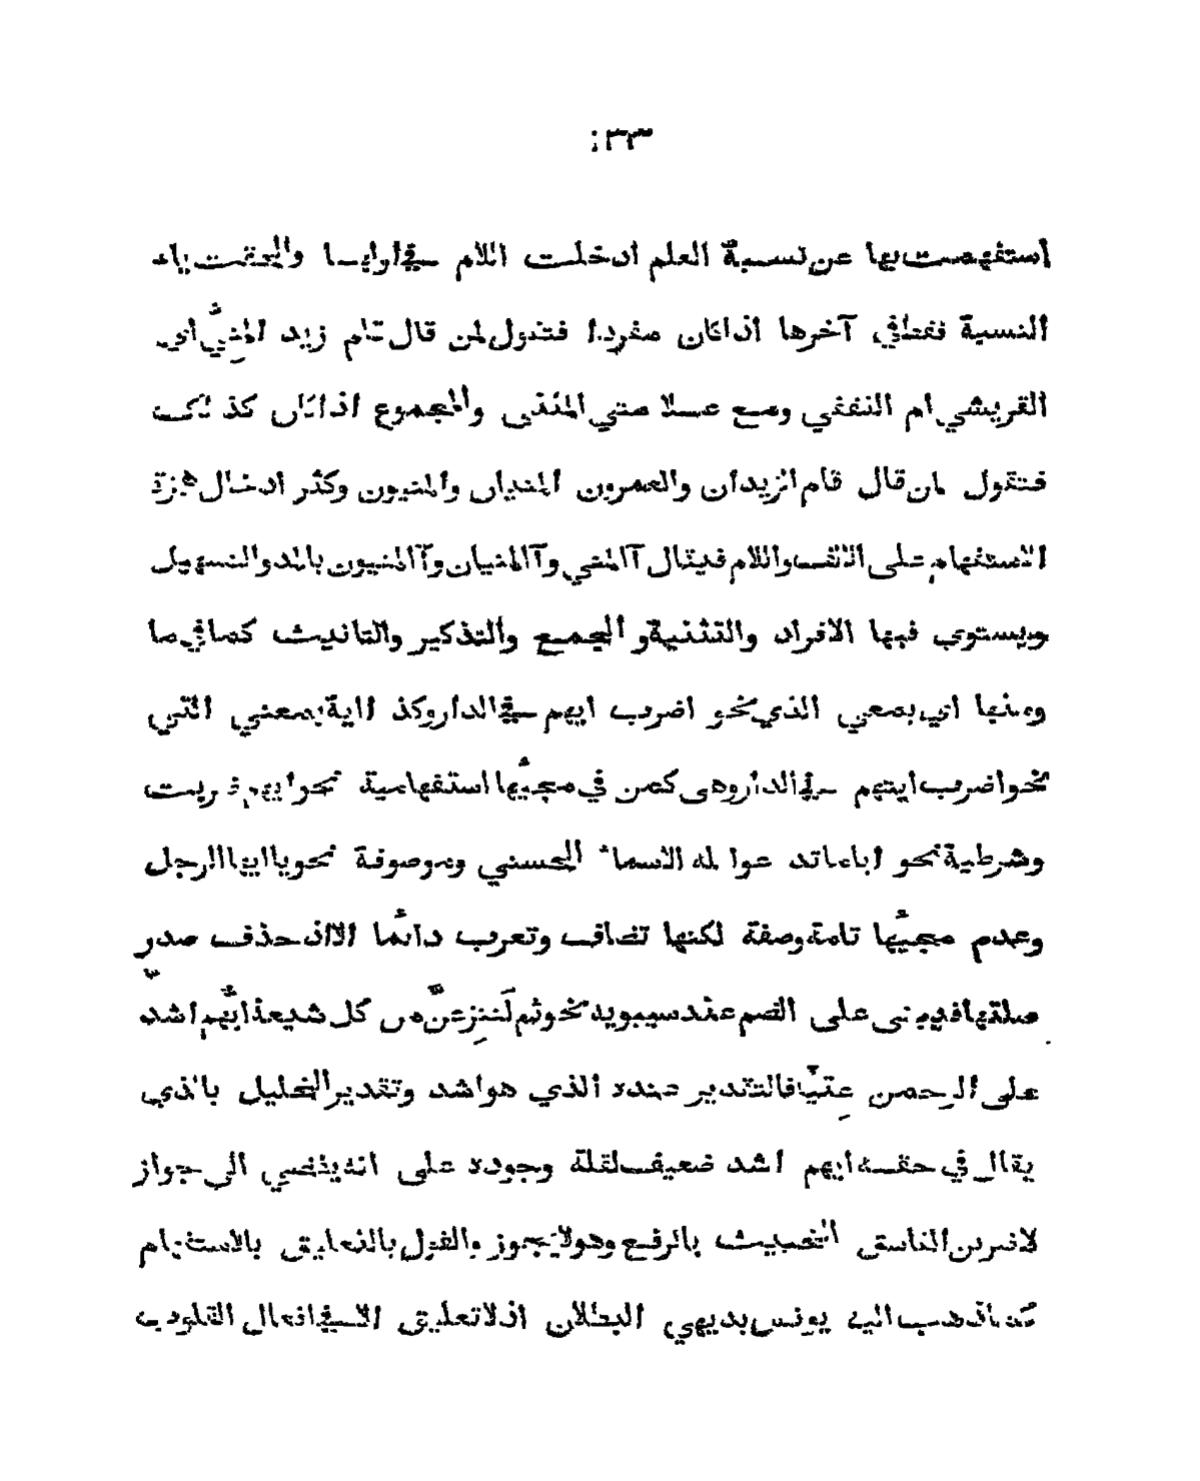 ٣٣
استفهمت بها عن نسبة العلم ادخلت اللام في اوايها والحقت ياء
النسبة فقط في آخرها اذا كان مفردا فتقول لمن قال قام زيد المنيّ اي
القريشي ام الثقفي ومع عملا متي المثنى والمجموع اذا كان كذلك
فتقول لمن قال قام الزيدان والعمرون المنيان والمنيون وكثر ادخال همزة
الاستفهام على الالف واللام فيقال آالمني وآالمنيان وآالمنيون بالمد والتسهيل
ويستوي فيها الافراد والتثنية و الجمع والتذكير والتانيث كما في ما
ومنها اي بمعني الذي نحو اضرب ايهم في الدار وكذ ااية بمعني التي
نحو اضرب ايتهم في الدار وهى كمن في مجيُّها استفهامية نحو ايهم ضربت
وشرطية نحو اياما تد عوا له الاسماء الحسني وموصوفة نحو يا ايها الرجل
وعدم مجيُّها تامة وصفة لكنها تضاف وتعرب دائما الا اذ حذف صدر
صلتها فيبنى على الضم عند سيبويه نحو ثم لَننزِعنَّ من كل شيعة ايُّهم اشدّ
على الرحمن عِتيّا فالتقدير عنده الذي هو اشد وتقدير الخليل بالذي
يقال في حقه ايهم اشد ضعيف لقلة وجوده على انه يفضي الى جواز
لاضربن الفاسق الخبيث بالرفع وهو لا يجوز والقول بالتعليق بالاستفهام
كما ذهب اليه يونس بديهي البطلان اذ لا تعليق الا في افعال القلوب